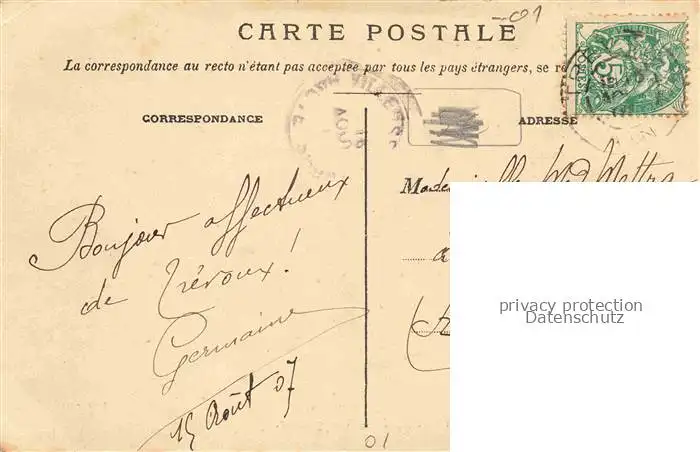 -01
CARTE POSTALE
La correspondance au recto n'étant pas acceptée par tous les pays étrangers, se re
CORRESPONDANCE
ADRESSE
Bonjour affectueux
de Trévoux!
Germaine
15 Août 07
Mademoiselle
à
privacy protection
Datenschutz
01